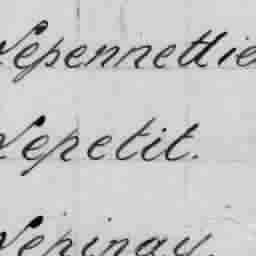 Lepennettie
Lepetit.
Lepinay.